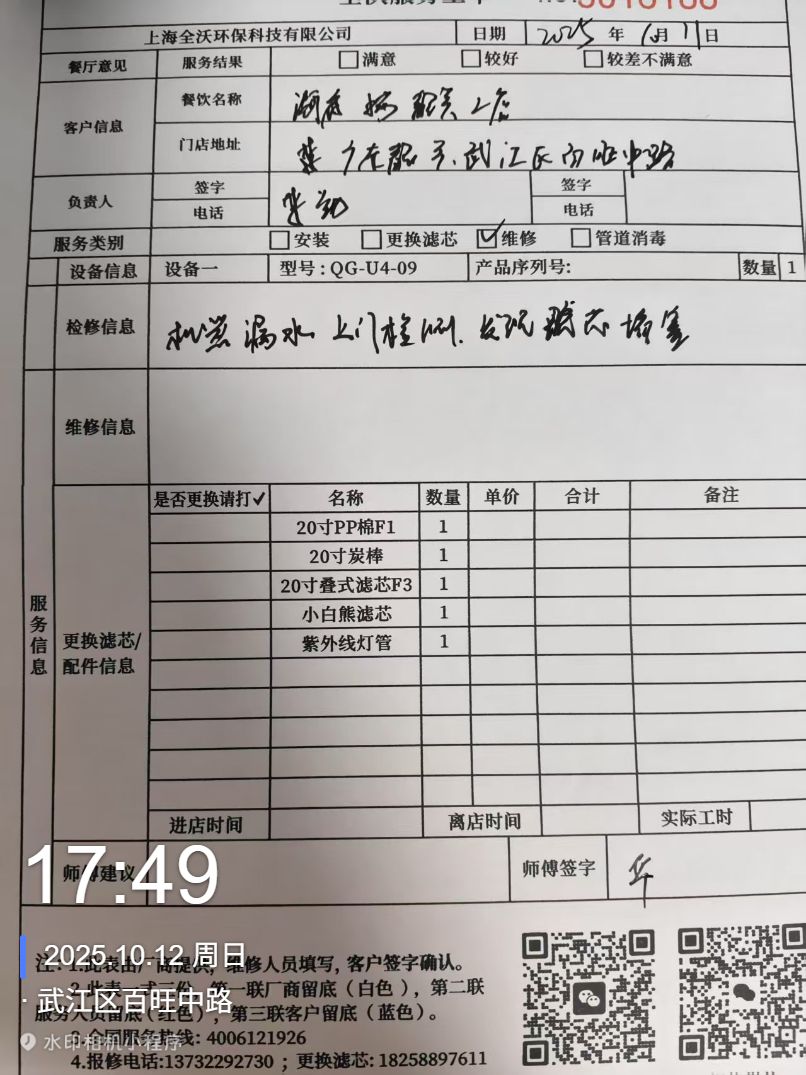 上海全沃环保科技有限公司 日期 2025 年 10月 11日
餐厅意见 服务结果 满意 较好 较差不满意
客户信息 餐饮名称
门店地址 武江区百旺中路
负责人 签字 签字
电话 电话
服务类别 安装 更换滤芯 ✓维修 管道消毒
设备信息 设备一 型号：QG-U4-09 产品序列号： 数量 1
检修信息 机器漏水 上门检测，发现滤芯堵塞
维修信息
服务信息
更换滤芯/配件信息
是否更换请打✓ 名称 数量 单价 合计 备注
20寸PP棉F1 1
20寸炭棒 1
20寸叠式滤芯F3 1
小白熊滤芯 1
紫外线灯管 1
进店时间 离店时间 实际工时
师傅建议 师傅签字 华
17:49
2025.10.12 周日
·武江区百旺中路
水印相机小程序
注：1.此表由厂商提供，维修人员填写，客户签字确认。
2.此表一式三份，第一联厂商留底（白色），第二联
服务人员留底（红色），第三联客户留底（蓝色）。
3.全国服务热线：4006121926
4.报修电话:13732292730 ；更换滤芯: 18258897611